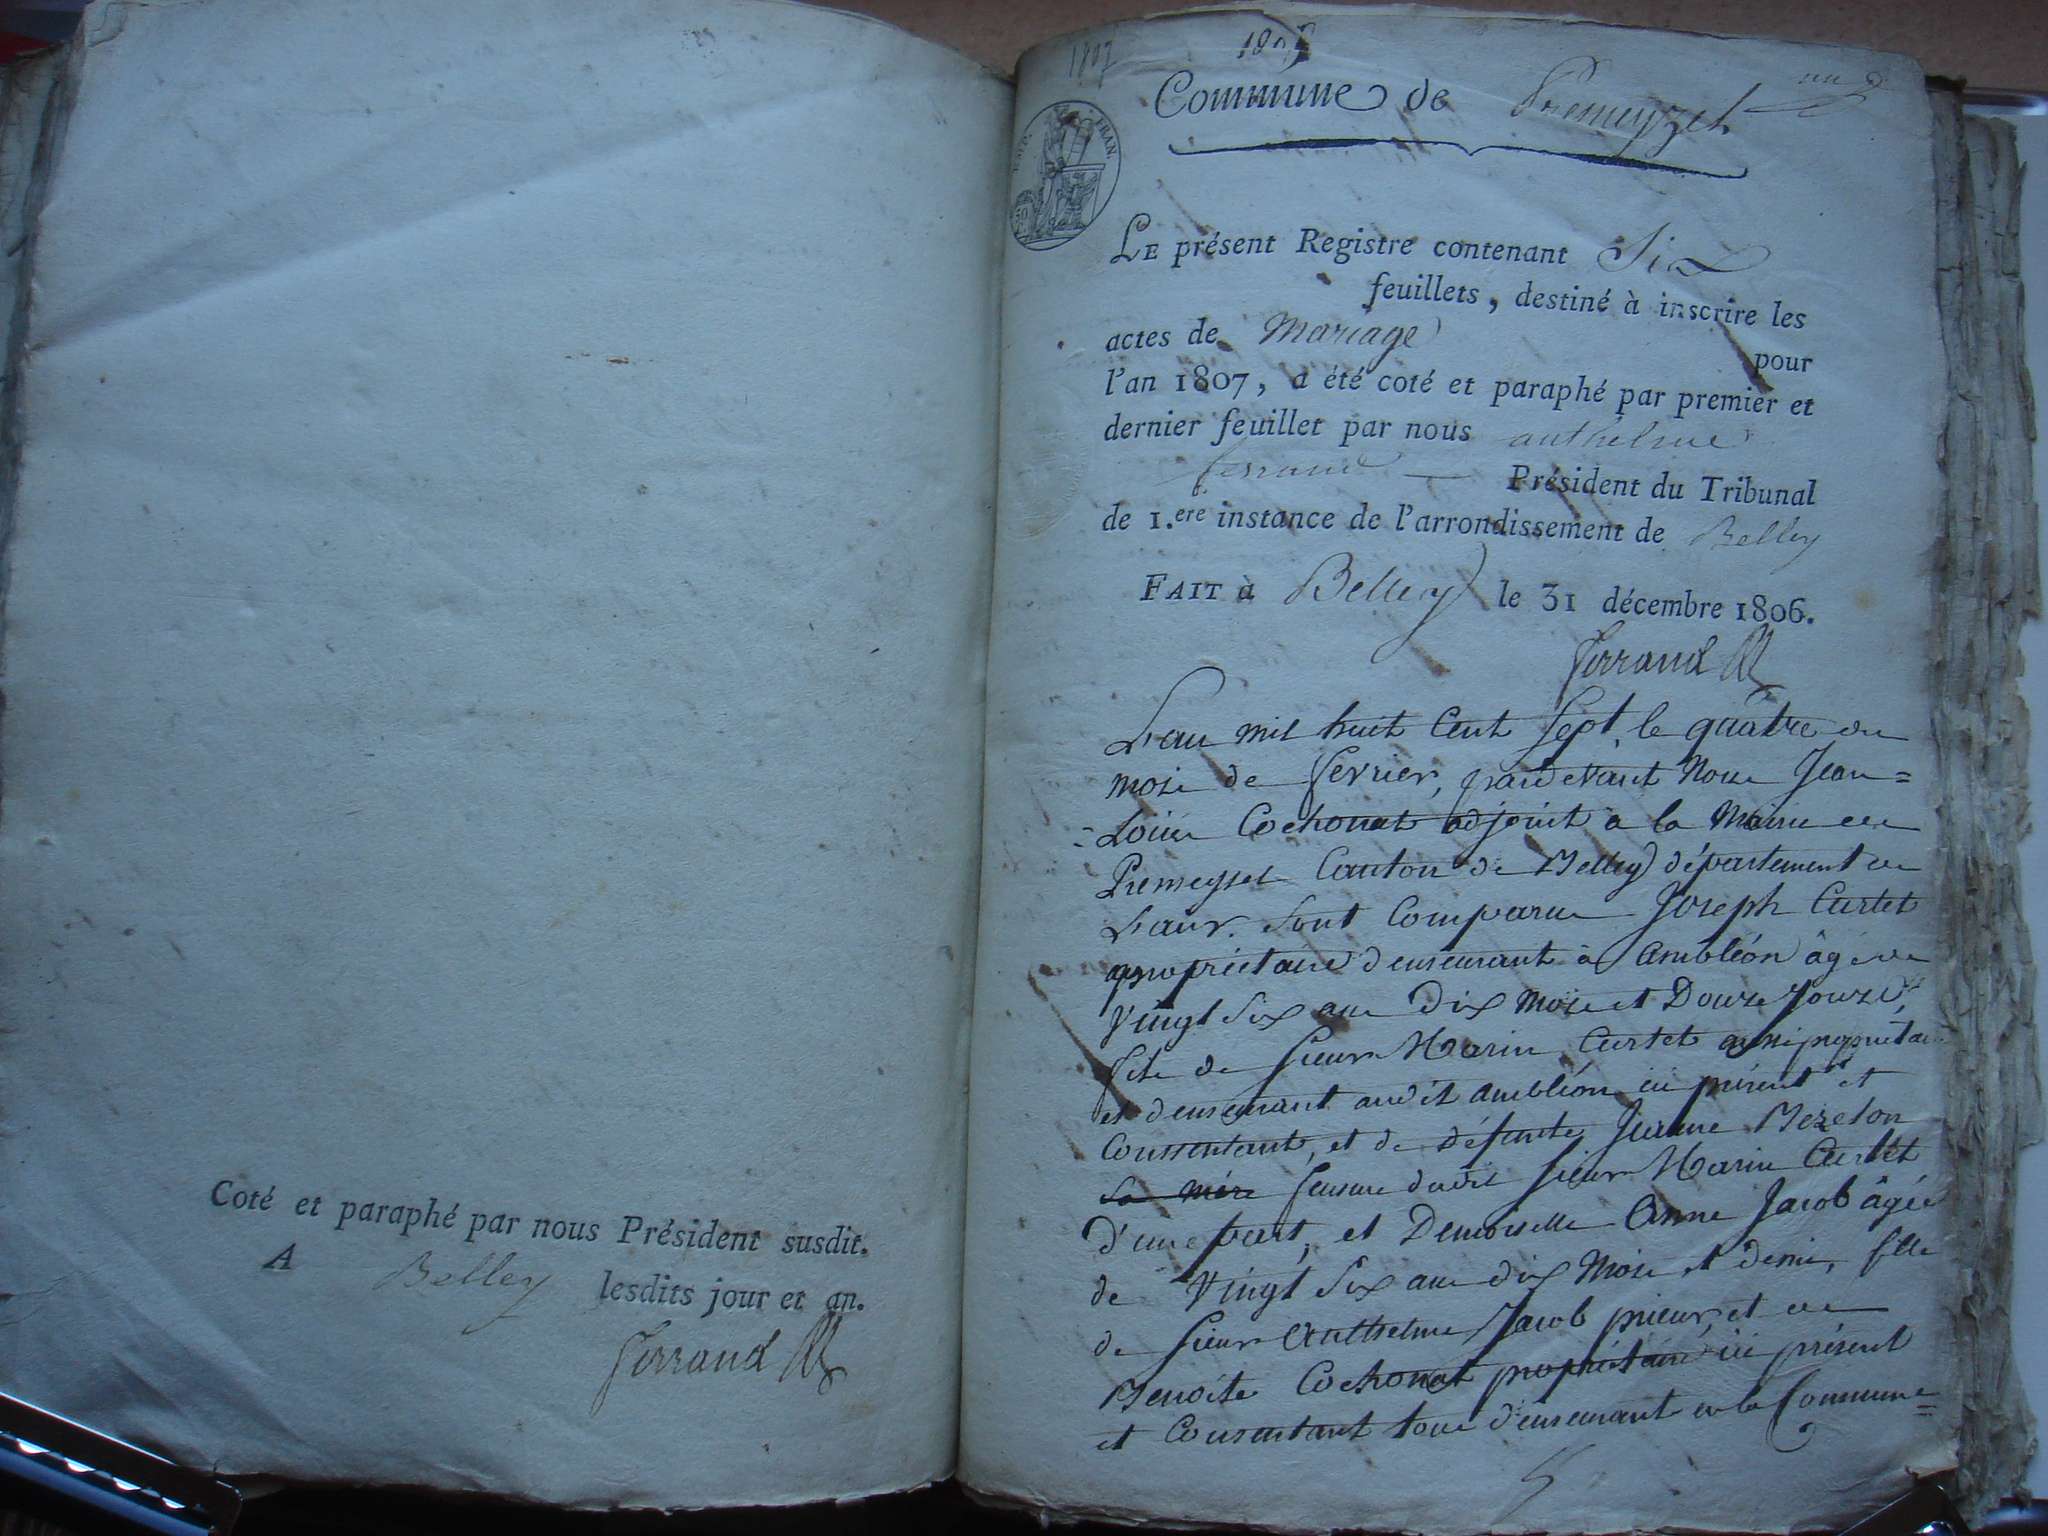 Coté et paraphé par nous Président susdit.
A Belley lesdits jour et an.
Ferrand
1807
1807
un
Commune de Premeyzel
EMP. FRAN.
50
LE présent Registre contenant Six
feuillets, destiné à inscrire les
actes de Mariage pour
l'an 1807, a été coté et paraphé par premier et
dernier feuillet par nous anthelme
ferrand Président du Tribunal
de 1.ere instance de l'arrondissement de Belley
FAIT à Belley le 31 décembre 1806.
Ferrand
L'an mil huit Cent Sept, le quatre du
mois de fevrier, pardevant Nous Jean=
=Louis Cochonat adjoint à la Mairie de
Premeysel Canton de Belley département de
L'ain. Sont Comparus Joseph Curtet
propriétaire demeurant à Ambléon âgé de
Vingt Six ans Dix Mois et Douze Jours,
fils de sieur Marin Curtet aussi propriétai
et demeurant audit Ambléon ici présent et
Consentant, et de défunte Jeanne Bezeton
sa mère femme dudit sieur Marin Curtet
D'une part, et Demoiselle Anne Jacob âgée
de Vingt Six ans dix Mois et demi, fille
de sieur Anthelme Jacob prieur, et de
Benoite Cochonat propriétaire ici présent
et Consentant tous demeurant en la Commune=